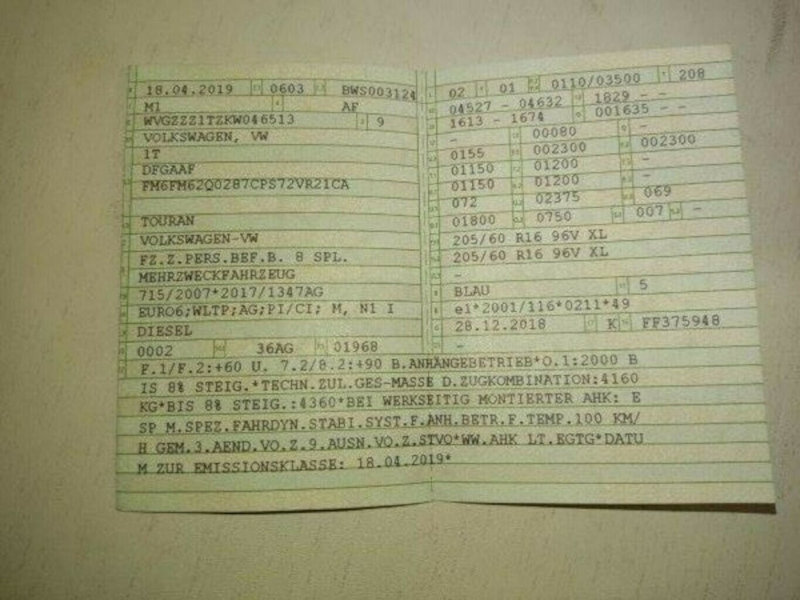 18.04.2019 0603 BWS003124
M1 AF
WVGZZZ1TZKW046513 9
VOLKSWAGEN, VW
1T
DFGAAF
FM6FM62Q0287CPS72VR21CA
TOURAN
VOLKSWAGEN-VW
FZ.Z.PERS.BEF.B. 8 SPL.
MEHRZWECKFAHRZEUG
715/2007*2017/1347AG
EURO6;WLTP;AG;PI/CI; M, N1 I
DIESEL
0002 36AG 01968
02 01 0110/03500 208
04527 - 04632 1829 - -
1613 - 1674 001635 - -
- 00080 -
0155 002300 002300
01150 01200 -
01150 01200 -
072 02375 069
01800 0750 007 -
205/60 R16 96V XL
205/60 R16 96V XL
-
BLAU 5
e1*2001/116*0211*49
28.12.2018 K FF375948
-
F.1/F.2:+60 U. 7.2/8.2:+90 B.ANHÄNGEBETRIEB*O.1:2000 B
IS 8% STEIG.*TECHN.ZUL.GES-MASSE D.ZUGKOMBINATION:4160
KG*BIS 8% STEIG.:4360*BEI WERKSEITIG MONTIERTER AHK: E
SP M.SPEZ.FAHRDYN.STABI.SYST.F.ANH.BETR.F.TEMP.100 KM/
H GEM.3.AEND.VO.Z.9.AUSN.VO.Z.STVO*WW.AHK LT.EGTG*DATU
M ZUR EMISSIONSKLASSE: 18.04.2019*